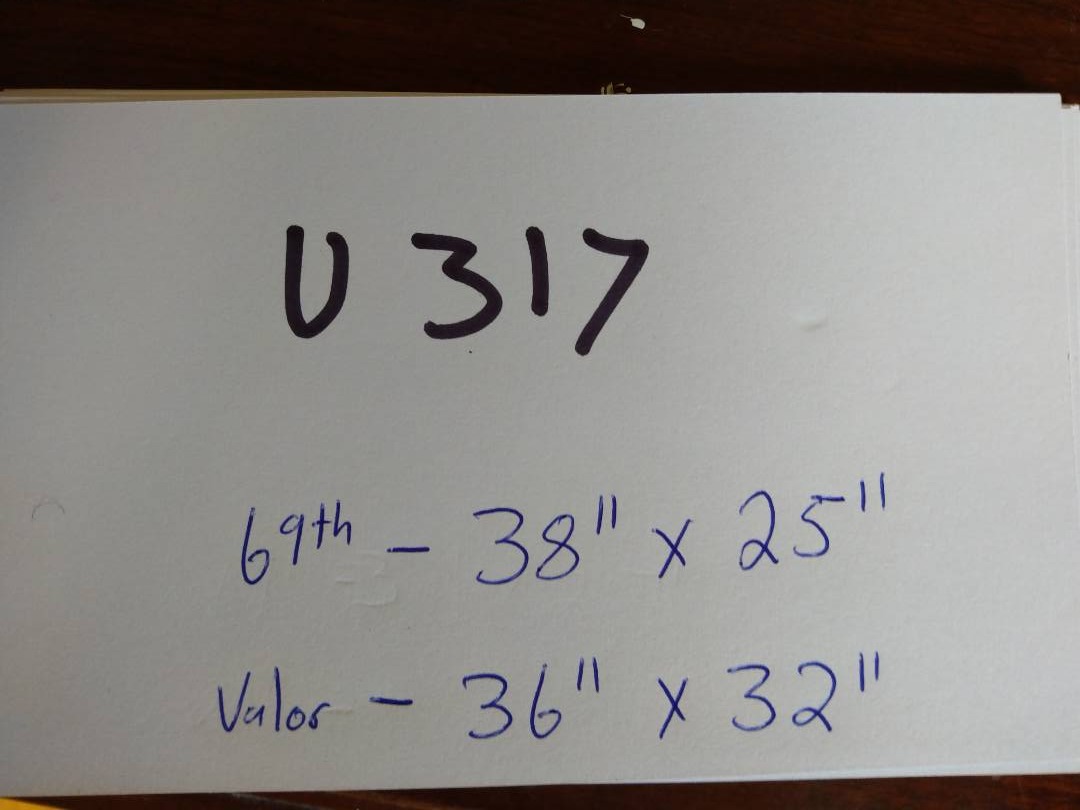 U 317
69th - 38" x 25"
Valor - 36" x 32"